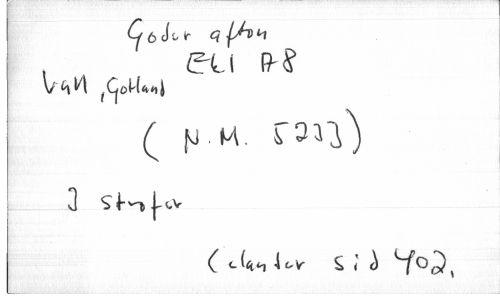 Goder afton
EKl A8
Vall, Gotland
(N.M. 5233)
3 strofer
Clander sid 402.